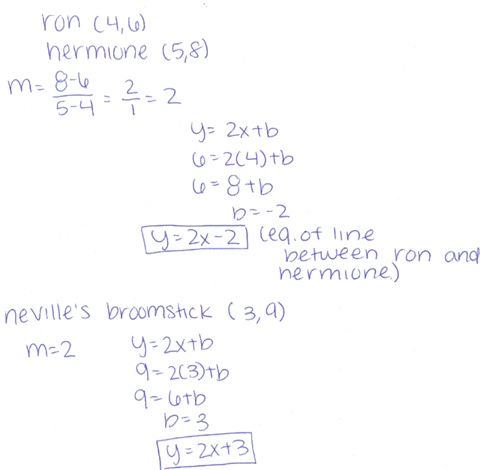 ron (4,6)
hermione (5,8)
m = 8-6/5-4 = 2/1 = 2
y = 2x+b
6 = 2(4)+b
6 = 8+b
b = -2
y = 2x-2 (eq. of line
between ron and
hermione)
neville's broomstick (3,9)
m=2
y=2x+b
9 = 2(3)+b
9 = 6+b
b = 3
y = 2x+3